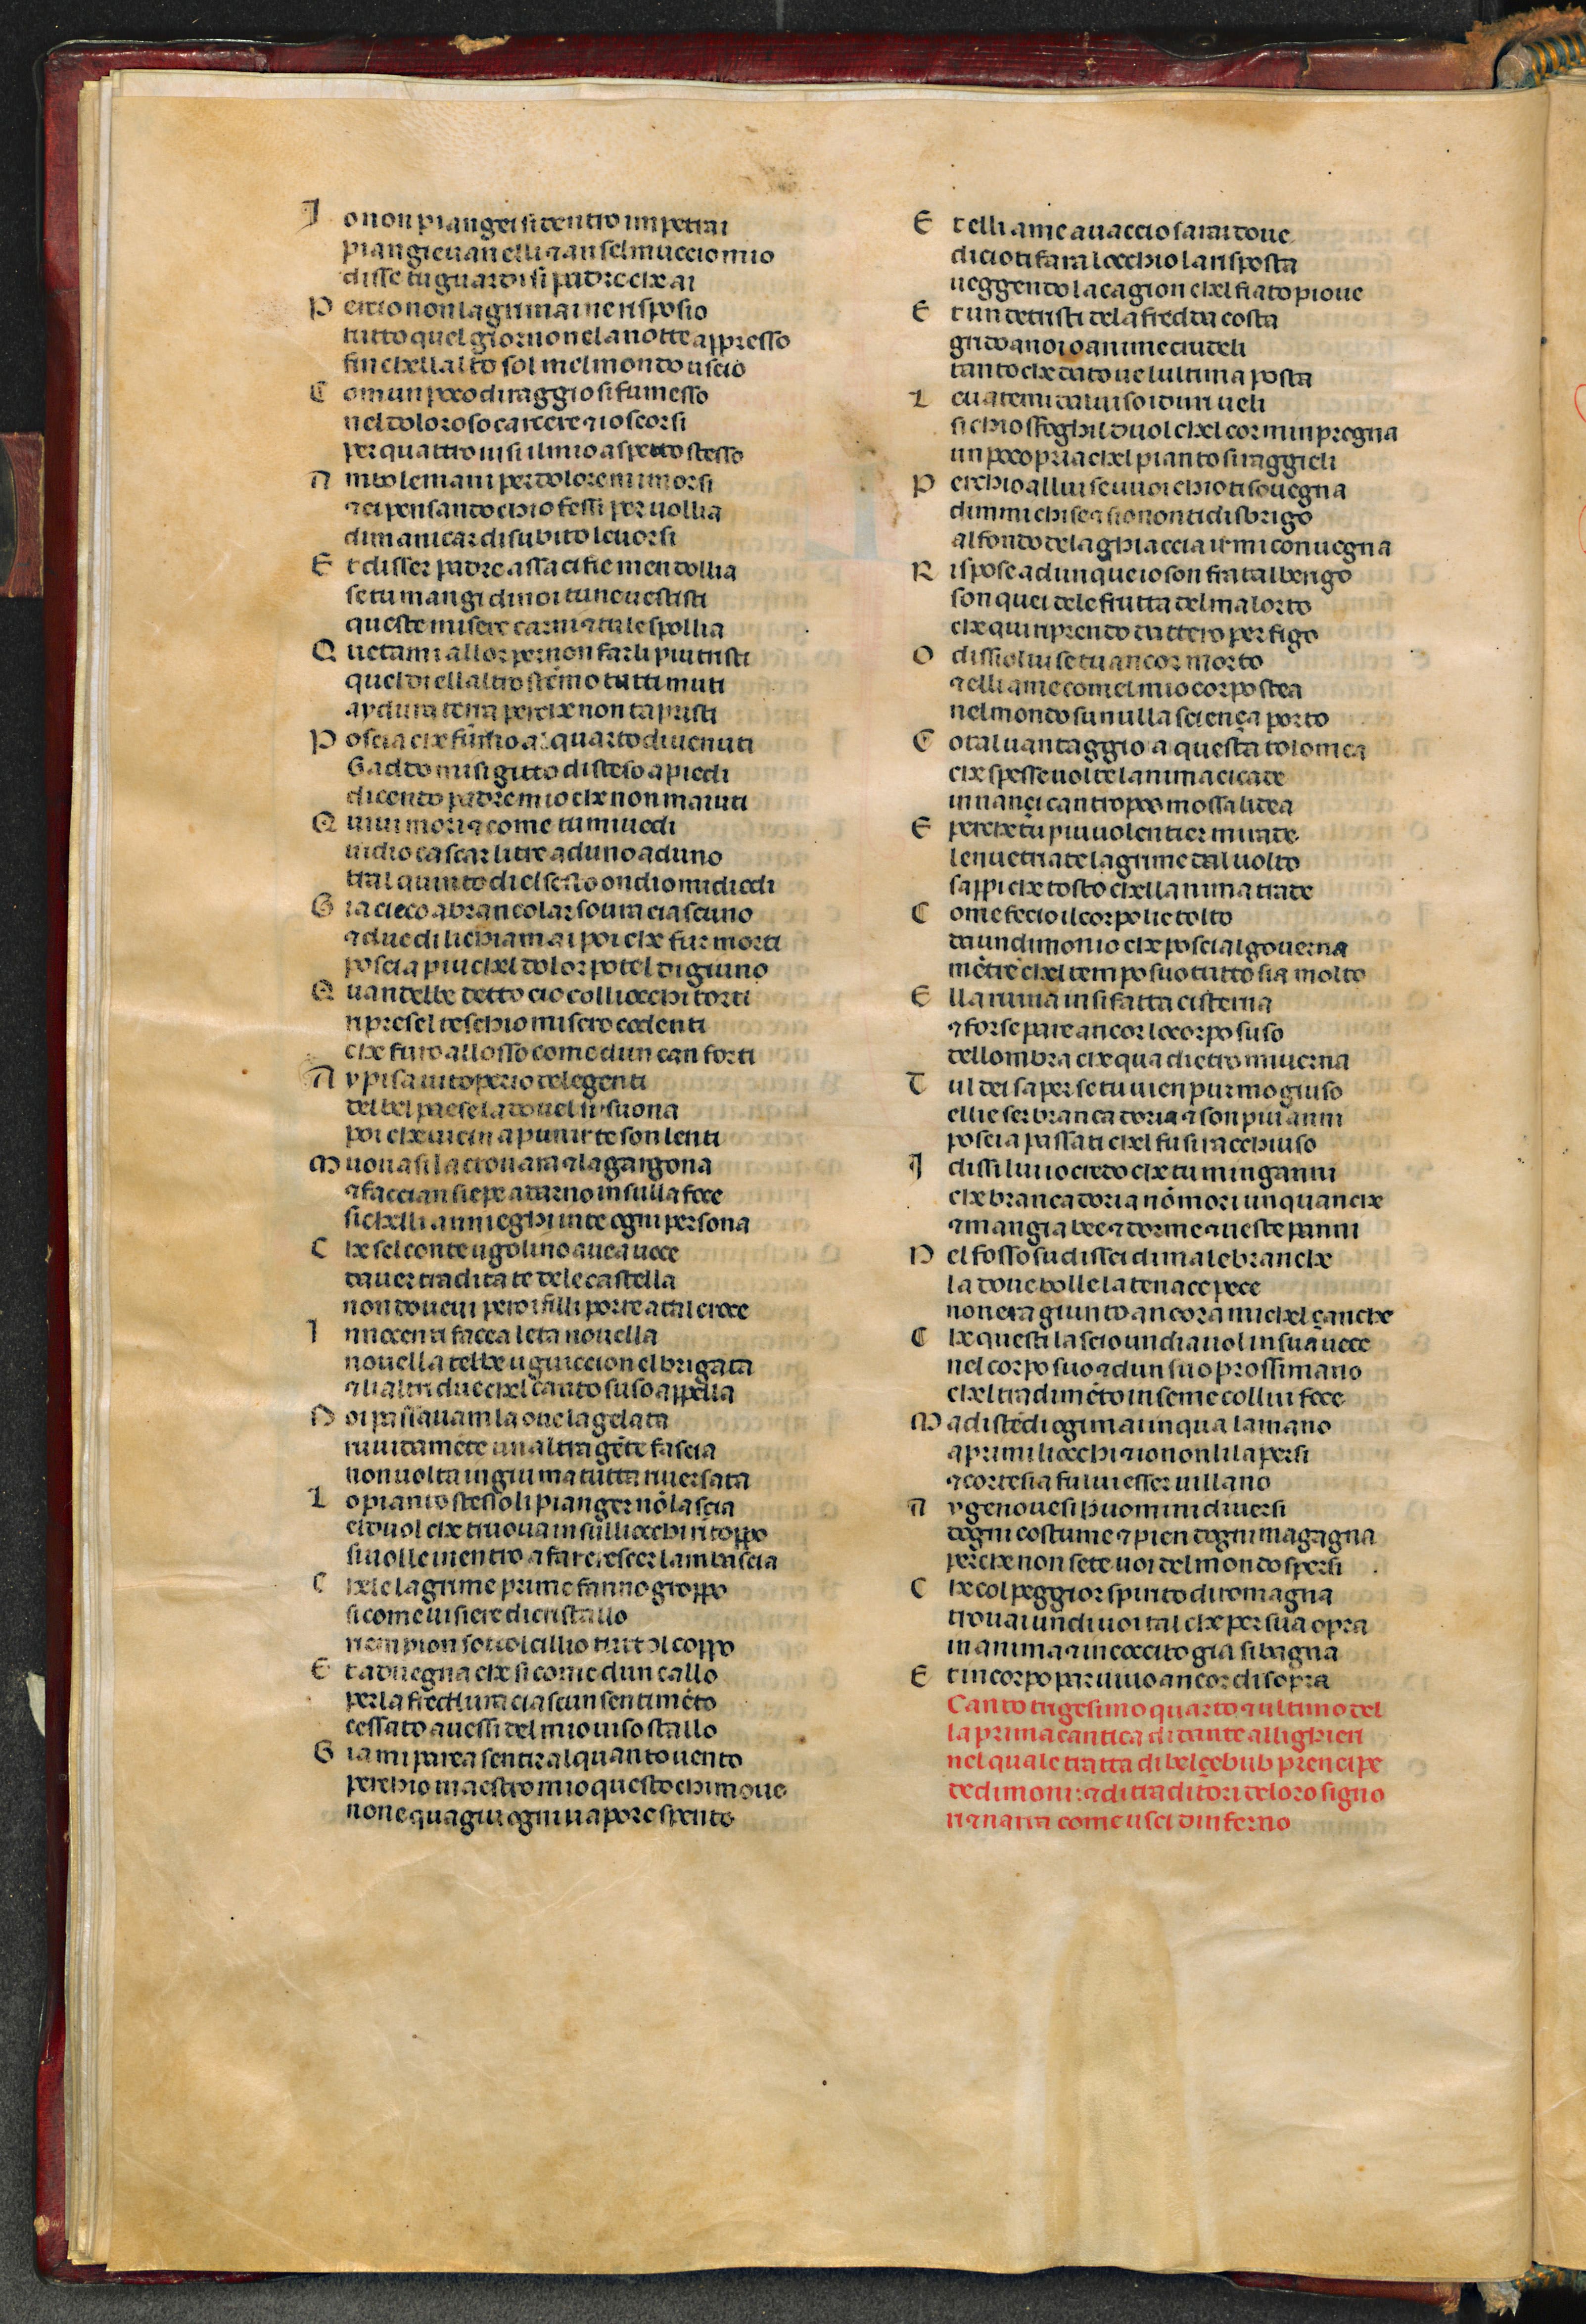 J o non piangei si dentro impetrai
piangievan elli ⁊ anselmuccio mio
disse tu guardi si padre che ai
P ercio non lagrimai ne rispos io
tutto quel giorno ne la notte appresso
fin chellaltro sol nel mondo uscio
C om un poco di raggio si fu messo
nel doloroso carcere ⁊ io scorsi
per quattro visi il mio aspetto stesso
A mbo le mani per dolore mi morsi
⁊ ei pensando chio fessi per vollia
di manicar di subito levorsi
E t disser padre assa ci fie men dollia
se tu mangi di noi tu ne vestisti
queste misere carni ⁊ tu le spollia
Q uetami allor per non farli piu tristi
quel di ellaltro stemo tutti muti
ay dura terra perche non tapristi
P oscia che fumo al quarto di venuti
Gaddo mi si gitto disteso a piedi
dicendo padre mio che non maiuti
Q uivi mori ⁊ come tu mi vedi
vidio cascar li tre ad uno ad uno
tral quinto di el sesto ondio mi diedi
G ia cieco a brancolar sovra ciascuno
⁊ due di li chiamai poi che fur morti
poscia piu chel dolor potel digiuno
Q uandebbe detto cio colli occhi torti
riprese l teschio misero co denti
che furo allosso come dun can forti
A y pisa vitoperio de le genti
del bel paese la dovel si suona
poi che vicin a punir te son lenti
M uovasi la cravara ⁊ la gargona
⁊ faccian siepe ad arno in sulla foce
si chelli annieghi in te ogni persona
C he sel conte ugolino avea voce
daver tradita te dele castella
non dovei tu pero i filli porre a tal croce
I nnocenti facea leta novella
novella tebbe uguiccion el brigata
⁊ li altri due chel canto suso appella
N oi passavam la ove la gelata
ruvidamēte unaltra gēte fascia
non volta in giu ma tutta riversata
L o pianto stesso li pianger nō lascia
el duol che truova in sulli occhi rītoppo
si volle in entro a far crescer lambascia
C he le lagrime prime fanno groppo
si come visiere di cristallo
riempion sottol cillio tuttol coppo
E t advegna che si come dun callo
per la freddura ciascun sentimēto
cessato avessi del mio viso stallo
G ia mi parea sentir alquanto vento
perchio maestro mio questo chi move
non e qua giu ogni vapore spento
E t elli a me avaccio sarai dove
di cio ti fara locchio la risposta
veggendo la cagion chel fiato piove
E t un de tristi dela fredda costa
grido a noi o anime crudeli
tanto che dato ve lultima posta
L evatemi dal viso i duri veli
si chio sfoghil duol chel cor mimpregna
un poco pria chel pianto si raggieli
P erchio allui se vuoi chio ti sovegna
dimmi chi se ⁊ sio non ti disbrigo
al fondo dela ghiaccia ir mi convegna
R ispose adunque io son frat alberigo
son quei dele frutta del mal orto
che qui riprendo dattero per figo
O dissio lui se tu ancor morto
⁊ elli a me come l mio corpo stea
nel mondo su nulla sciença porto
C otal vantaggio a questa tolomea
che spesse volte lanima ci cade
innançi cantropos mossa li dea
E perche tu piu volentier mi rade
le nvetriate lagrime dal volto
sappi che tosto chellanima trade
C ome fecio il corpo lie tolto
da un dimonio che poscia l governa
mētre chel tempo suo tutto sia volto
E lla ruina in si fatta cisterna
⁊ forse pare ancor lo corpo suso
dellombra che qua dietro mi verna
T ul dei saper se tu vien pur mo giuso
elli e ser branca doria ⁊ son piu anni
poscia passati chel fu si racchiuso
I dissi lui io credo che tu minganni
che branca doria nō mori unquanche
⁊ mangia bee ⁊ dorme ⁊ veste panni
N el fosso su dissei di malebranche
la dove bolle la tenace pece
non era giunto ancora michel çanche
C he questi lascio un diavol in sua vece
nel corpo suo ⁊ dun suo prossimano
chel tradimēto insieme collui fece
M a distēdi ogimai in qua la mano
aprimi li occhi ⁊ io non li lapersi
⁊ cortesia fu lui esser villano
A y genovesi huomini diversi
dogni costume ⁊ pien dogni magagna
perche non sete voi del mondo spersi
C he col peggior spirito di romagna
trovai un di voi tal che per sua opra
in anima in cocito gia si bagna
E t in corpo par vivo ancor di sopra
Canto trigesimo quarto ⁊ ultimo del
la prima cantica di dante allighieri
nel quale tratta di belçebub prencipe
de dimoni: ⁊ di traditori de loro signo
ri ⁊ narra come usci dinferno